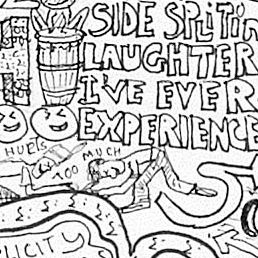 SIDE SPLITIN
LAUGHTER
I'VE EVER
EXPERIENCE
HURTS TOO MUCH
5
PLICITY